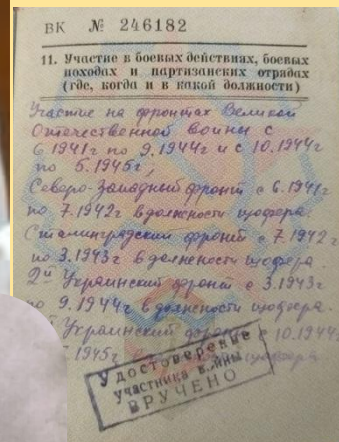 ВК № 246182
11. Участие в боевых действиях, боевых
походах и партизанских отрядах
(где, когда и в какой должности)
Участие на фронтах Великой
Отечественной войны с
6.1941г по 9.1944г и с 10.1944г
по 5.1945г,
Северо-Западный фронт с 6.1941г
по 7.1942г в должности шофера.
Сталинградский фронт с 7.1942г
по 3.1943г в должности шофера
2й Украинский фронт с 3.1943г
по 9.1944г в должности шофера.
Украинский фронт с 10.1944г
1945г шофера
Удостоверение
Участника войны
ВРУЧЕНО